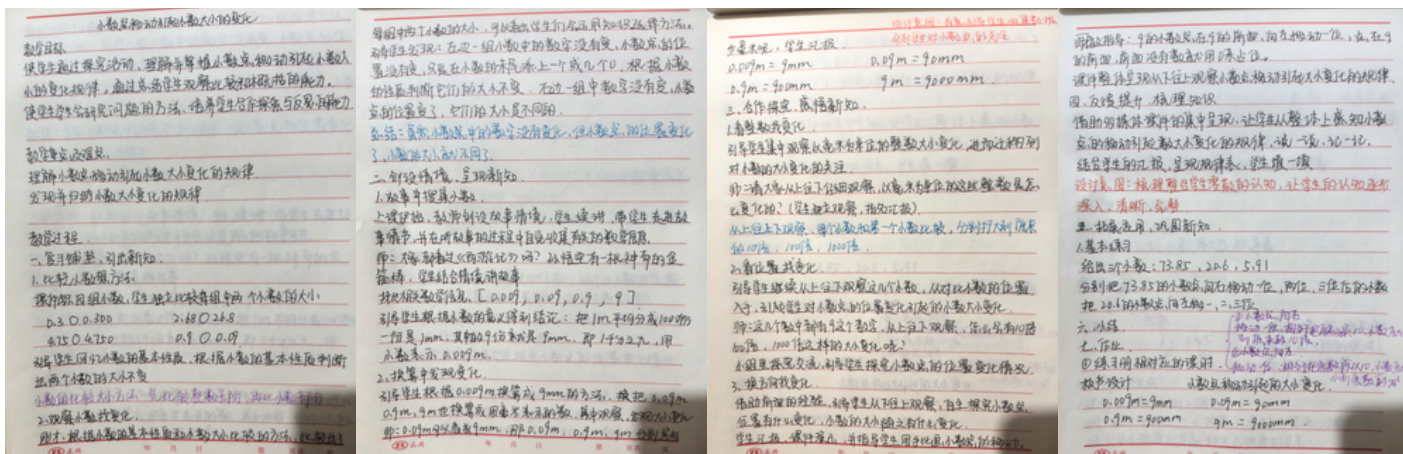 小数点移动引起小数大小的变化
教学目标
使学生通过探究活动、理解并掌握小数点移动引起小数大
小的变化规律。通过总结学生观察比较和概括的能力。
使学生学会研究问题的方法,培养学生合作探索与反思的能力
教学重点及难点
理解小数点移动引起小数大小变化的规律
发现并归纳小数大小变化的规律
教学过程
一、复习铺垫、引出新知
1.比较小数有方法
课件出示四组小数,学生独立比较每组中两个小数的大小
0.3〇0.300 2.68〇26.8
4.75〇4.750 0.9〇0.09
引导学生回忆小数的基本性质、根据小数的基本性质判断
出两个小数的大小不变
2.观察小数找变化
刚才,根据小数的基本性质和小数大小比较的方法,比较出了
每组中两个小数的大小,
引导学生发现:左边一组小数中的数字没有变,小数点的位
置没有变,只是在小数的末尾添上一个或几个0,根据小数
的性质判断它们的大小不变。右边一组中数字没有变,小数
点的位置变了,它们的大小是不同的.
总结:虽然小数点中的数字没有变化,但小数点的位置变化
了,小数的大小就不同了.
二、创设情境、呈现新知
1.故事中搜集小数
上课伊始,教师创设故事情境,学生续讲,带学生走进故
事情节,并在听故事的过程中自觉收集有效的数学信息.
师:大家都看过《西游记》吗?孙悟空有一根神奇的金
箍棒,学生结合情境讲故事
找出相关数学信息.[0.009,0.09,0.9,9]
引导学生根据小数的意义得到结论:把1m平均分成1000份
一份是1mm,其中的9份就是9mm,即1千分之九,用
小数表示0.009m.
2.换算中发现变化
引导学生根据0.009m换算成9mm的方法,接把0.09m
0.9m,9m也换算成用毫米表示的数,
0.009m=9mm 0.09m=90mm
0.9m=900mm 9m=9000mm
三、合作探究,感悟新知
1.看整数找变化
引导学生集中观察以毫米为单位的整数大小变化,进而迁移到
对小数的大小变化的关注
师:请大家从上往下仔细观察,以毫米为单位的这些整数是怎
么变化的?(学生独立观察,指名汇报)
从上往下观察,每个小数和第一个小数比较,分别扩大到原来
的10倍、100倍、1000倍.
2.看位置找变化
引导学生继续从上往下观察这几个小数,从对比小数的位置
入手,引起学生对小数点的位置变化引起的小数大小变化.
师:这几个数中都有9这个数字,从上往下观察,怎么会有10倍
100倍,1000倍这样的大小变化呢?
小组里探究交流,引导学生探究小数点的位置变化情况.
3.换方向找变化
借助前面的经验,引导学生从下往上观察,自主探究小数点
位置有什么变化,小数的大小随之有什么变化.
学生汇报,课件演示,并指导学生用手比画小数点的移动.
的前面,前面没有数就用0来占位.
课件整体呈现从下往上观察小数点移动引起大小变化的规律.
四、反馈提升,梳理知识
借助多媒体课件的集中呈现,让学生从整体上感知小数
点的移动引起数大小变化的规律,读一读,记一记,
结合学生的汇报,呈现规律表,学生填一填
设计意图:梳理整合学生零散的认知,让学生的认知逐步
深入、清晰、完整
五、拓展应用,巩固新知
1.基本练习
给出三个小数:73.85,20.6,5.91
分别把73.85的小数点向右移动一位,两位,三位后的小数
把20.6的小数点向左移一、二、三位
六、小结
七、作业
①练习册相对应的课时.
板书设计 小数点移动引起的大小变化.
0.009m=9mm 0.09m=90mm
0.9m=900mm 9m=9000mm